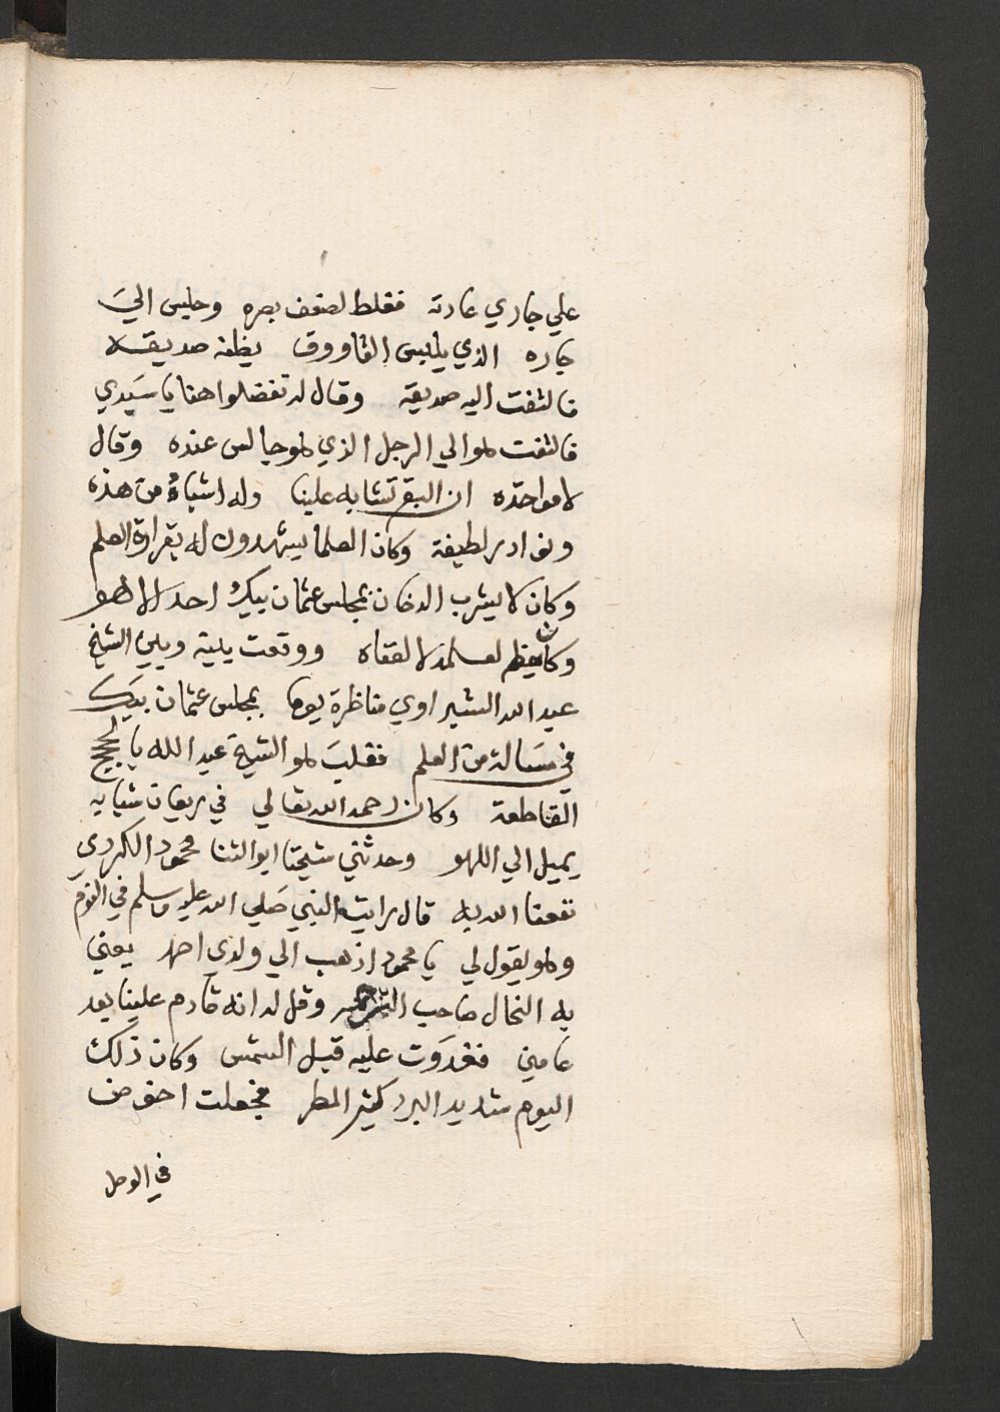 علي جاري عادته فغلط لضعف بصره وجلس الىَ
جاره الذي يلبس القاووق يظنه صديقه
فالتفت اليه صديقه وقال له تفضلوا هنا يا سَيدي
فالتفت هو الي الرجل الذي هو جالس عنده وقال
لا مواخذه ان البقر تشابه علينا وله اشياءُ من هذه
ونوادر لطيفة وكان العلما يشهدون له بغزارة العلم
وكان لا يشرب الدخان بمجلس عثمان بيك احد الا هو
وكان يعظم لعلمه لا لفقاه ووقعت بينه وبين الشيخ
عبد الله الشبراوي مناظرة يوما بمجلس عثمان بيَك
في مسَالة من العلم فغلبَ هو الشيخ عبد الله بالحجج
القاطعة وكان رحمه الله تعالي في ريعان شبابه
يميل الي اللهو وحدثني شيخنا ابو الثنا محمود الكردي
نفعنا الله به قال رايت النبي صَلي الله عليه وسلم في النوم
وهو يقول لي يا محمود اذهب الي ولدي احمد يعني
به النحال صاحب وقل له انه قادم علينا بعد
عامين فغدَوت عليه قبل الشمس وكان ذلك
اليوم شديد البرد كثير المطر فجعلت اخوض
في الوحل